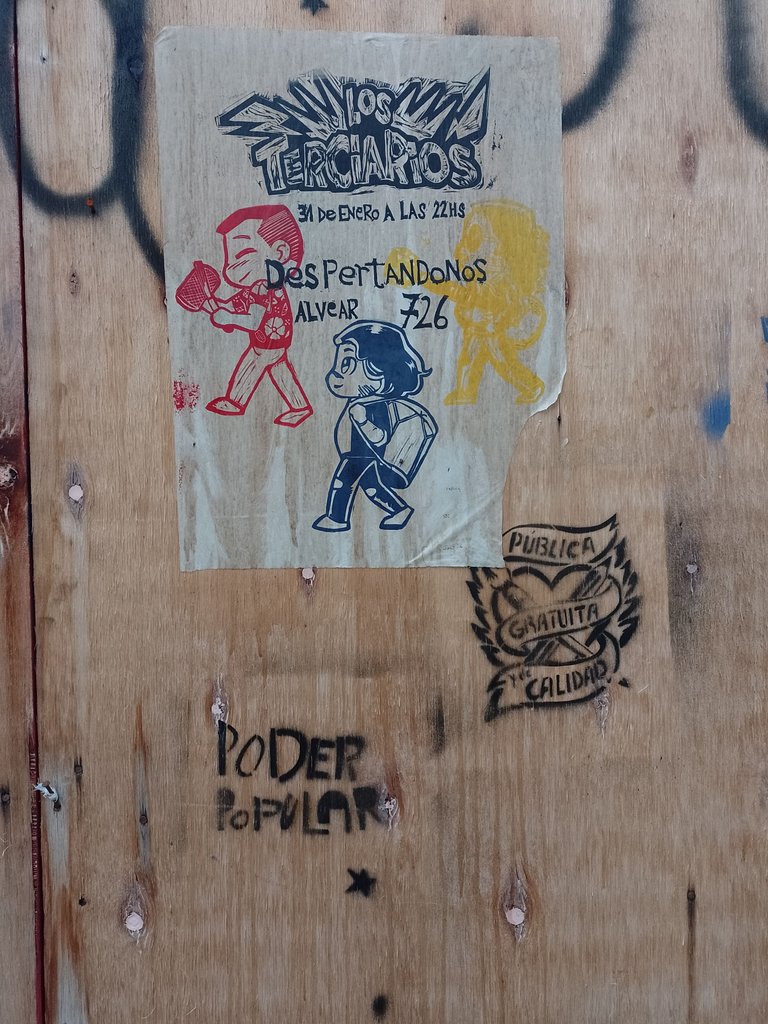 LOS
TERCIARIOS
31 DE ENERO A LAS 22HS
DESPERTANDONOS
ALVEAR 726
PÚBLICA
GRATUITA
Y DE CALIDAD
PODER
POPULAR